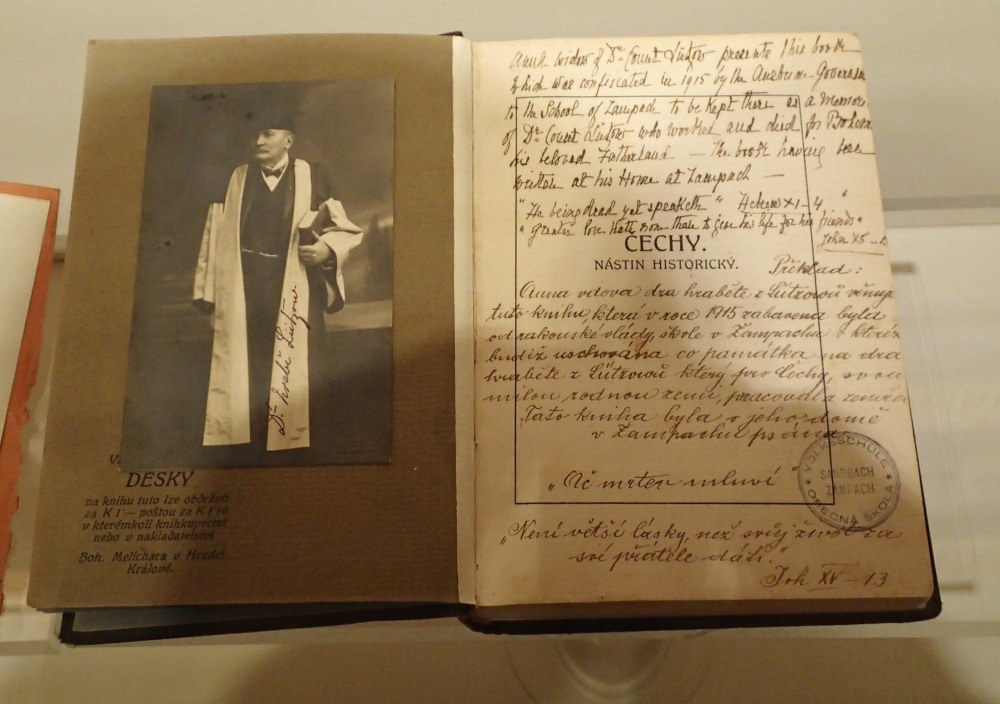 Dr. hrabě Lützow
DESKY
na knihu tuto lze obdržeti
za K 1·— poštou za K 1·10
v kterémkoli knihkupectví
nebo v nakladatelství
Boh. Melichara v Hradci
Králové.
Anna widow of Dr. Count Lützow presents this book
which was confiscated in 1915 by the Austrian
to the School of Zampach to be kept there as a
of Dr. Count Lützow who worked and died for
his beloved Fatherland — the book having been
written at his Home at Zampach —
"He being dead yet speaketh" Hebrews XI - 4
"Greater love hath non than to give his life for his friends"
John XV -
ČECHY.
NÁSTIN HISTORICKÝ.
Překlad:
Anna vdova dra hraběte z Lützowů věnuje
tuto knihu, která v roce 1915 zabavena byla
od rakouské vlády, škole v Žampachu v kteréž
budiž uschována co památka na dra
hraběte z Lützowů který pro Čechy, svou
milou rodnou zemi, pracoval a zemřel
Tato kniha byla v jeho domě
v Žampachu psána
„Ač mrtev mluví"
VOLKSSCHULE
SANDBACH
ŽAMPACH
OBECNÁ ŠKOLA
„Není větší lásky, než svůj život za
své přátele dáti."
Joh XV - 13